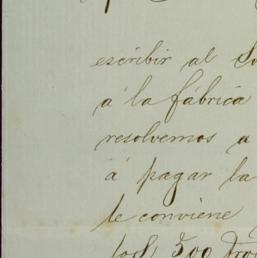 escribir al
á la fábrica
resolvemos a
á pagar la
le conviene
500